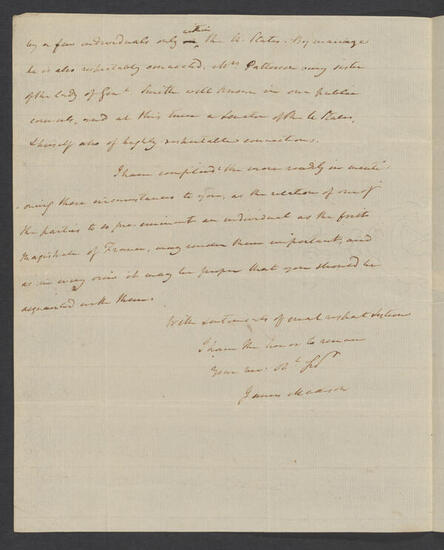 by a few individuals only within the U. States. By marriage
he is also respectably connected, Mrs Patterson being sister
of the lady of Genl. Smith well known in our public
councils, and at this time a Senator of the U. States,
& herself also of highly respectable connections.
I have complied the more readily in menti
-oning these circumstances to you, as the relation of one of
the parties to so pre-eminent an individual as the first
Magistrate of France, may render them important, and
as in every view it may be proper that you should be
acquainted with them.
With sentiments of great respect & esteem
I have the honor to remain
Your mo: Ob: Servt
James Madison